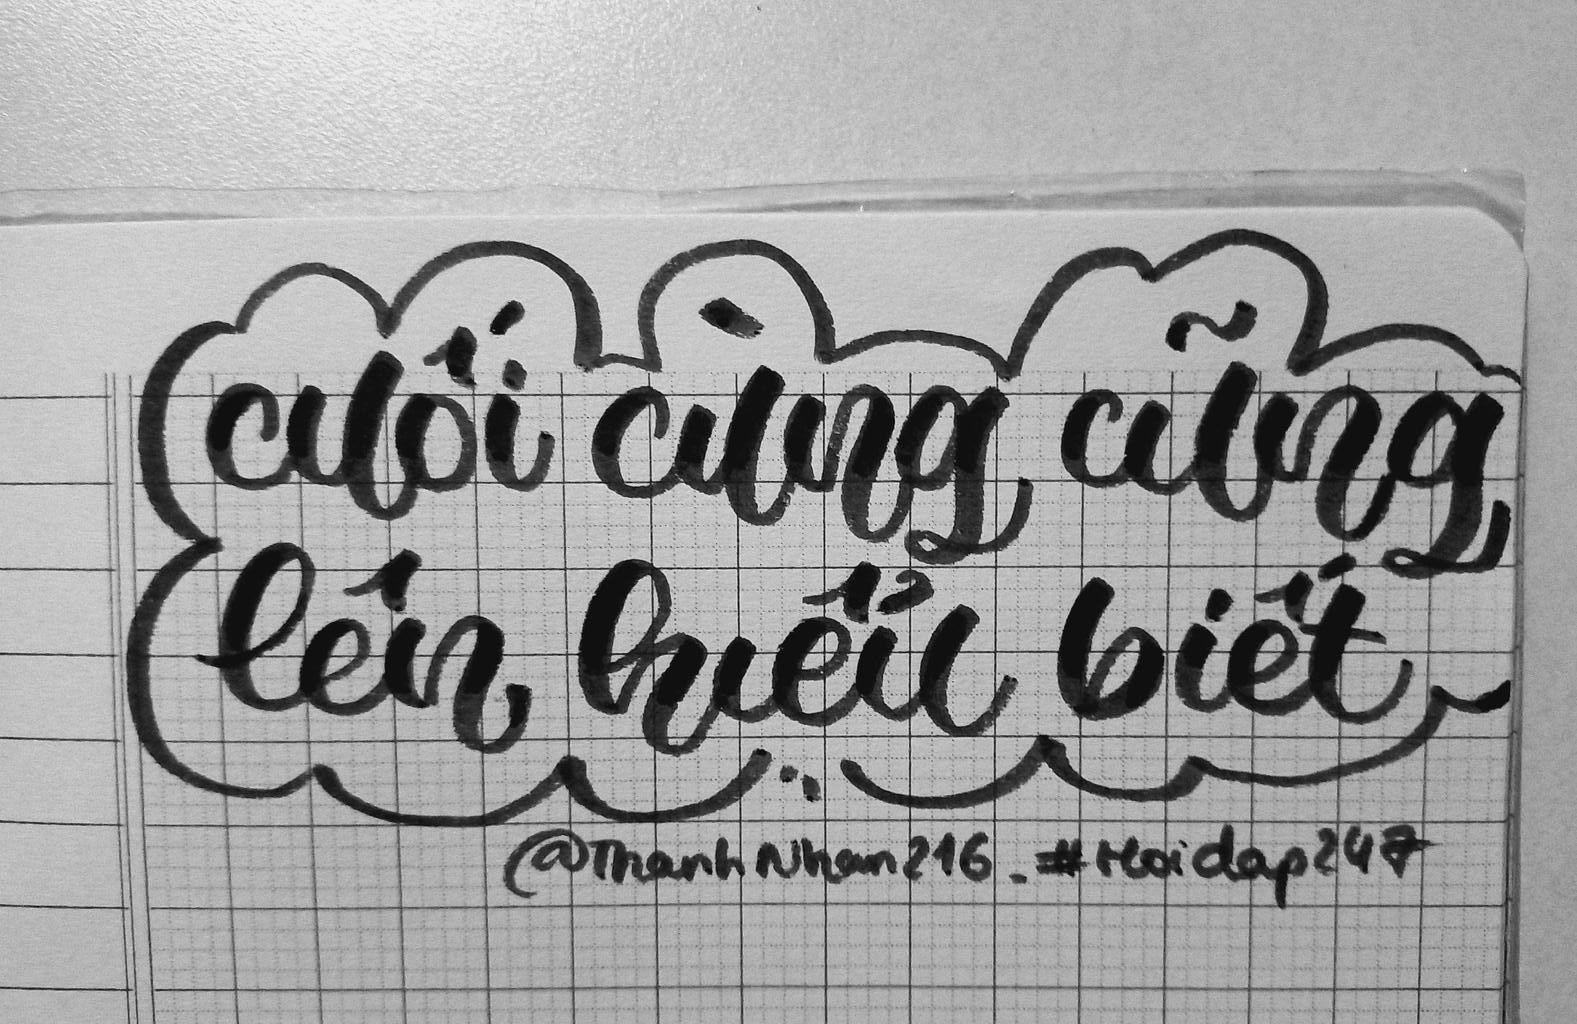 cuối cùng cũng
lên hiểu biết
@ThanhNhan216_#Hoidap247